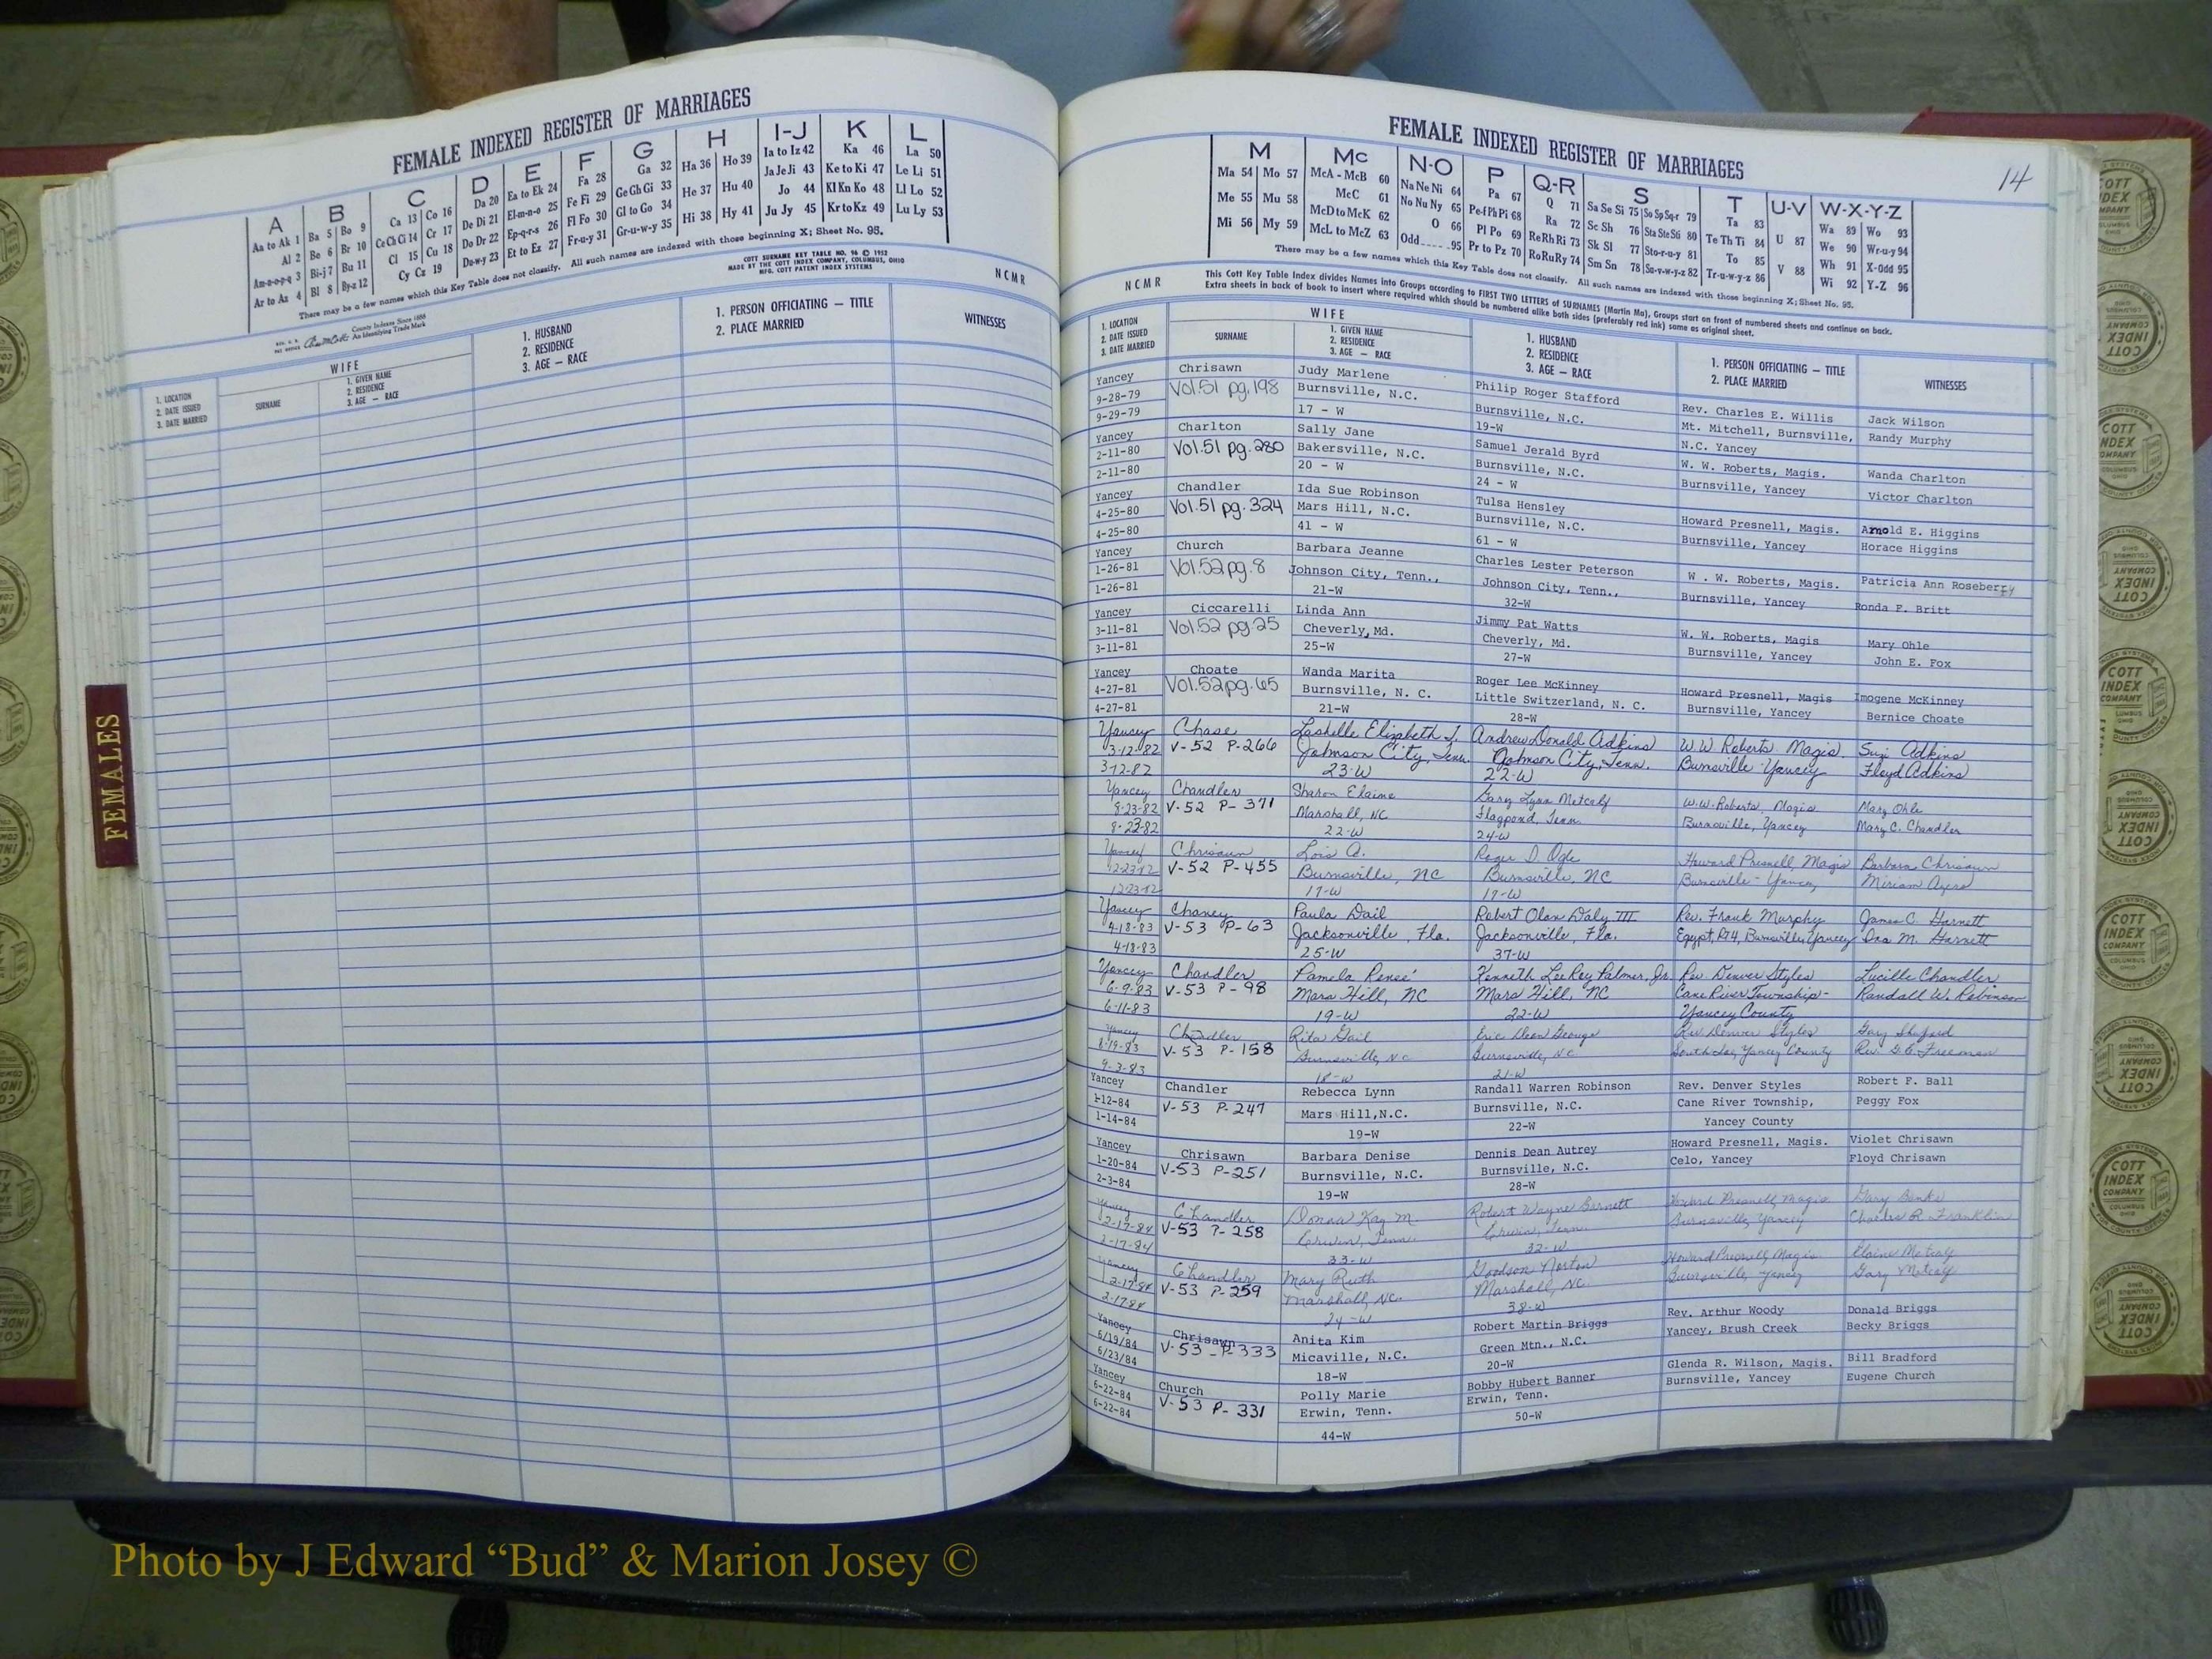 FEMALE INDEXED REGISTER OF MARRIAGES
A B C D E F G H I-J K L
Aa to Ak 1
Al 2
Am-n-o-p-q 3
Ar to Az 4
Ba 5 Bo 9
Be 6 Br 10
Bi-j 7 Bu 11
Bl 8 By-z 12
Ca 13 Co 16
Ce Ch Ci 14 Cr 17
Cl 15 Cu 18
Cy Cz 19
Da 20
De Di 21
Do Dr 22
Du-w-y 23
Ea to Ek 24
El-m-n-o 25
Ep-q-r-s 26
Et to Ez 27
Fa 28
Fe Fi 29
Fl Fo 30
Fr-u-y 31
Ga 32
Ge Gh Gi 33
Gl to Go 34
Gr-u-w-y 35
Ha 36 Ho 39
He 37 Hu 40
Hi 38 Hy 41
Ia to Iz 42
Ja Je Ji 43
Jo 44
Ju Jy 45
Ka 46
Ke to Ki 47
Kl Kn Ko 48
Kr to Kz 49
La 50
Le Li 51
Ll Lo 52
Lu Ly 53
There may be a few names which this Key Table does not classify. All such names are indexed with those beginning X; Sheet No. 95.
County Indexes Since 1888
An Identifying Trade Mark
COTT SURNAME KEY TABLE NO. 96 © 1952
MADE BY THE COTT INDEX COMPANY, COLUMBUS, OHIO
MFG. COTT PATENT INDEX SYSTEMS
NCMR
1. LOCATION
2. DATE ISSUED
3. DATE MARRIED
WIFE
SURNAME
1. GIVEN NAME
2. RESIDENCE
3. AGE — RACE
1. HUSBAND
2. RESIDENCE
3. AGE — RACE
1. PERSON OFFICIATING — TITLE
2. PLACE MARRIED
WITNESSES
FEMALES
FEMALE INDEXED REGISTER OF MARRIAGES
14
M Mc N-O P Q-R S T U-V W-X-Y-Z
Ma 54 Mo 57
Me 55 Mu 58
Mi 56 My 59
McA - McB 60
McC 61
McD to McK 62
McL to McZ 63
Na Ne Ni 64
No Nu Ny 65
O 66
Odd 95
Pa 67
Pe-f Ph Pi 68
Pl Po 69
Pr to Pz 70
Q 71
Ra 72
Re Rh Ri 73
Ro Ru Ry 74
Sa Se Si 75 So Sp Sq-r 79
Sc Sh 76 Sta Ste Sti 80
Sk Sl 77 Sto-r-u-y 81
Sm Sn 78 Su-v-w-y-z 82
Ta 83
Te Th Ti 84
To 85
Tr-u-w-y-z 86
U 87
V 88
Wa 89 Wo 93
We 90 Wr-u-y 94
Wh 91 X-Odd 95
Wi 92 Y-Z 96
There may be a few names which this Key Table does not classify. All such names are indexed with those beginning X; Sheet No. 95.
NCMR
This Cott Key Table Index divides Names into Groups according to FIRST TWO LETTERS of SURNAMES (Martin Ma), Groups start on front of numbered sheets and continue on back.
Extra sheets in back of book to insert where required which should be numbered alike both sides (preferably red ink) same as original sheet.
1. LOCATION
2. DATE ISSUED
3. DATE MARRIED
WIFE
SURNAME
1. GIVEN NAME
2. RESIDENCE
3. AGE — RACE
1. HUSBAND
2. RESIDENCE
3. AGE — RACE
1. PERSON OFFICIATING — TITLE
2. PLACE MARRIED
WITNESSES
Yancey Chrisawn Judy Marlene Philip Roger Stafford Rev. Charles E. Willis Jack Wilson
9-28-79 Vol.51 pg.198 Burnsville, N.C. Burnsville, N.C. Mt. Mitchell, Burnsville, Randy Murphy
9-29-79 17 - W 19-W N.C. Yancey
Yancey Charlton Sally Jane Samuel Jerald Byrd W. W. Roberts, Magis. Wanda Charlton
2-11-80 Vol.51 pg.280 Bakersville, N.C. Burnsville, N.C. Burnsville, Yancey Victor Charlton
2-11-80 20 - W 24 - W
Yancey Chandler Ida Sue Robinson Tulsa Hensley Howard Presnell, Magis. Arnold E. Higgins
4-25-80 Vol.51 pg.324 Mars Hill, N.C. Burnsville, N.C. Burnsville, Yancey Horace Higgins
4-25-80 41 - W 61 - W
Yancey Church Barbara Jeanne Charles Lester Peterson W . W. Roberts, Magis. Patricia Ann Roseberry
1-26-81 Vol.52 pg.8 Johnson City, Tenn., Johnson City, Tenn., Burnsville, Yancey Ronda F. Britt
1-26-81 21-W 32-W
Yancey Ciccarelli Linda Ann Jimmy Pat Watts W. W. Roberts, Magis Mary Ohle
3-11-81 Vol.52 pg.25 Cheverly, Md. Cheverly, Md. Burnsville, Yancey John E. Fox
3-11-81 25-W 27-W
Yancey Choate Wanda Marita Roger Lee McKinney Howard Presnell, Magis Imogene McKinney
4-27-81 Vol.52 pg.65 Burnsville, N. C. Little Switzerland, N. C. Burnsville, Yancey Bernice Choate
4-27-81 21-W 28-W
Yancey Chase Lashelle Elizabeth J. Andrew Donald Adkins W.W. Roberts Magis. Suzi Adkins
3-12-82 V-52 P-266 Johnson City, Tenn. Johnson City, Tenn. Burnsville Yancey Floyd Adkins
3-12-82 23-W 22-W
Yancey Chandler Sharon Elaine Gary Lynn Metcalf W.W. Roberts, Magis Mary Ohle
8-23-82 V-52 P-371 Marshall, NC Flagpond, Tenn. Burnsville, Yancey Mary C. Chandler
8-23-82 22-W 24-W
Yancey Chrisawn Lois A. Roger D. Ogle Howard Presnell, Magis Barbara Chrisawn
12-23-82 V-52 P-455 Burnsville, NC Burnsville, NC Burnsville - Yancey Miriam Ayers
12-23-82 17-W 17-W
Yancey Chaney Paula Dail Robert Olan Daly III Rev. Frank Murphy James C. Garnett
4-18-83 V-53 P-63 Jacksonville, Fla. Jacksonville, Fla. Egypt, Rt4, Burnsville, Yancey Ina M. Garnett
4-18-83 25-W 37-W
Yancey Chandler Pamela Renee' Kenneth LeeRoy Palmer, Jr. Rev Denver Styles Lucille Chandler
6-9-83 V-53 P-98 Mars Hill, NC Mars Hill, NC Cane River Township- Randall W. Robinson
6-11-83 19-W 22-W Yancey County
Yancey Chandler Rita Gail Eric Dean George Rev Denver Styles Gary Shuford
8-19-83 V-53 P-158 Burnsville, NC Burnsville, NC South Toe, Yancey County Rev. G.C. Freeman
9-3-83 18-W 21-W
Yancey Chandler Rebecca Lynn Randall Warren Robinson Rev. Denver Styles Robert F. Ball
1-12-84 V-53 P-247 Mars Hill,N.C. Burnsville, N.C. Cane River Township, Peggy Fox
1-14-84 19-W 22-W Yancey County
Yancey Chrisawn Barbara Denise Dennis Dean Autrey Howard Presnell, Magis. Violet Chrisawn
1-20-84 V-53 P-251 Burnsville, N.C. Burnsville, N.C. Celo, Yancey Floyd Chrisawn
2-3-84 19-W 28-W
Yancey Chandler Donna Kay M. Robert Wayne Barnett Howard Presnell, Magis Gary Banks
2-17-84 V-53 P-258 Erwin, Tenn. Erwin, Tenn. Burnsville, Yancey Charles R. Franklin
2-17-84 33-W 32-W
Yancey Chandler Mary Ruth Goodson Norton Howard Presnell, Magis Elaine Metcalf
2-17-84 V-53 P-259 Marshall, NC. Marshall, NC. Burnsville, Yancey Gary Metcalf
2-17-84 24-W 38-W
Yancey Chrisawn Anita Kim Robert Martin Briggs Rev. Arthur Woody Donald Briggs
6/19/84 V-53 - P-333 Micaville, N.C. Green Mtn., N.C. Yancey, Brush Creek Becky Briggs
6/23/84 18-W 20-W
Yancey Church Polly Marie Bobby Hubert Banner Glenda R. Wilson, Magis. Bill Bradford
6-22-84 V-53 P-331 Erwin, Tenn. Erwin, Tenn. Burnsville, Yancey Eugene Church
6-22-84 44-W 50-W
Photo by J Edward “Bud” & Marion Josey ©